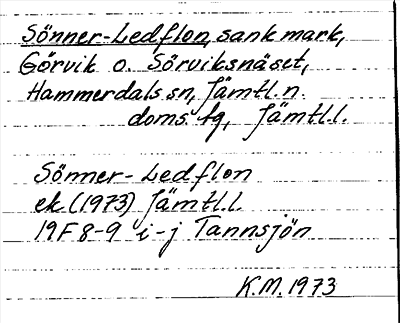 Sönner-Ledflon, sank mark,
Görvik o. Sörviksnäset,
Hammerdals sn, Jämtl. n.
doms. tg, Jämtl. l.
Sönner-Ledflon
ek. (1973) Jämtl. l.
19F 8-9 i-j Tannsjön
K.M. 1973